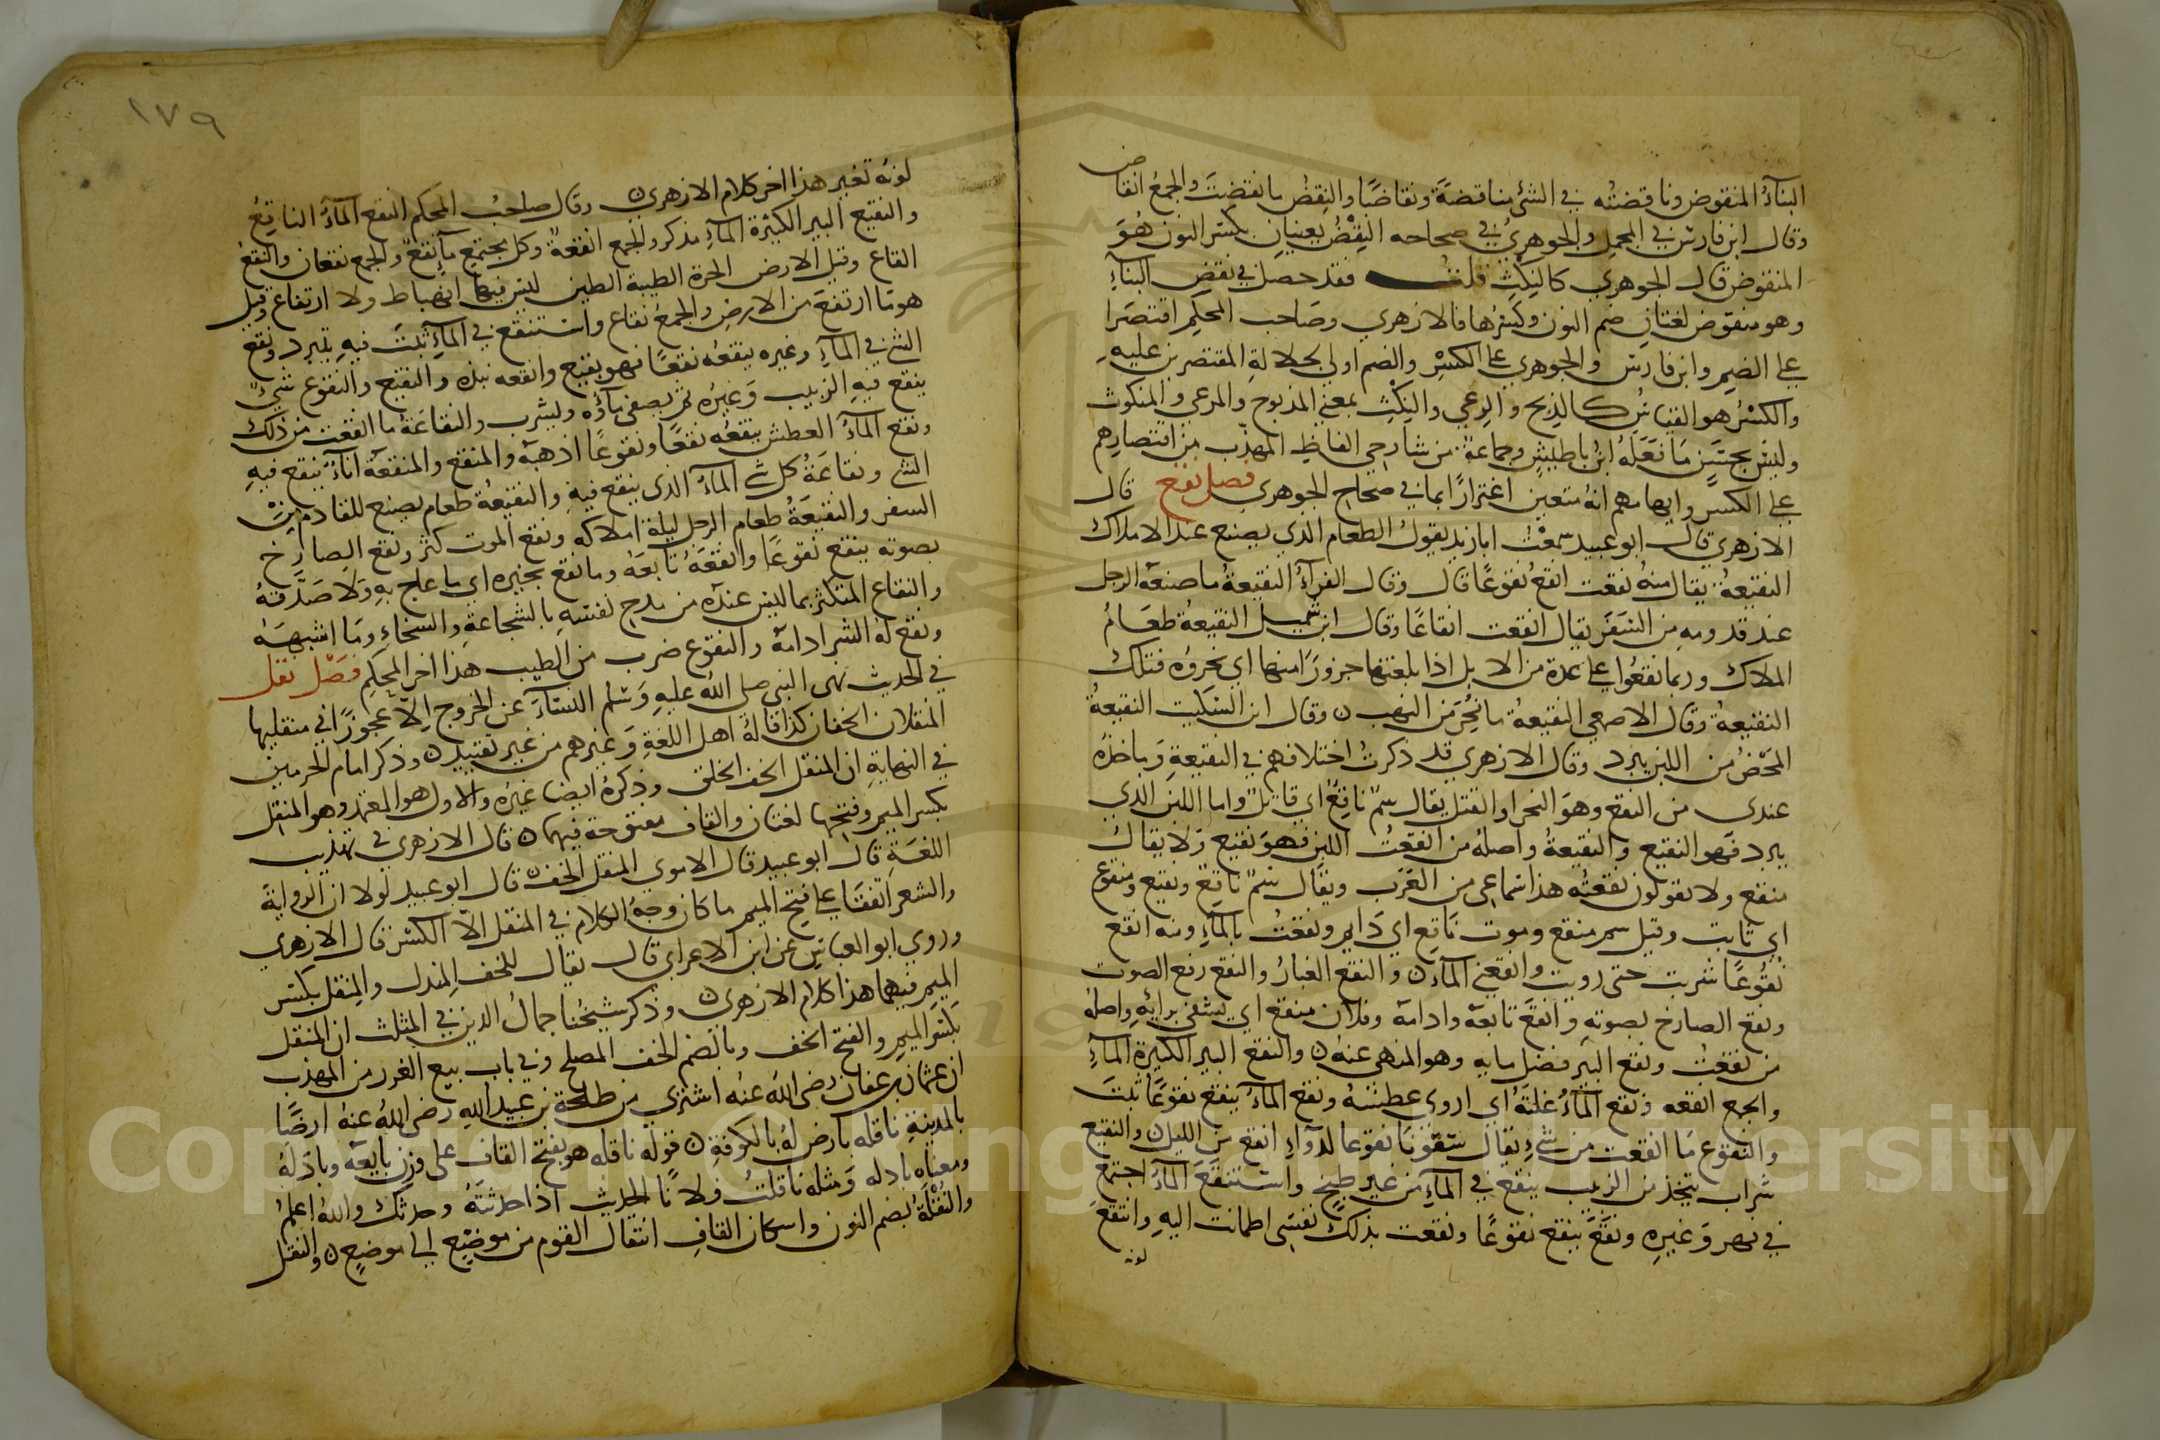 البنآءُ المنقوض وناقضته في الشئ مناقضةً ونقاضًا والنِقضُ ما نقضِتَ والجمعُ انقاض
وقال ابن فارس في المجمل والجوهريُ في صحاحه النِقْضُ يعنيانِ بكسر النون هُوَ
المنقوض قال الجوهري كالنِكثِ قلت فقد حصل في نقض البنآءِ
وهو منقوض لغتان ضم النون وكسرُها فالازهري وصاحب المحكم اقتصَرا
على الضمِ وابن فارس والجوهري على الكَسْرِ والضم اولى لجلالةِ المقتصرين عليهِ
والكسْرُ هو القياسُ كالذِبح والرِعي والنِكْثِ بمعني المذبوح والمرعي والمنكوث
وليسَ بحَسَنٍ مَا نَعَلَهُ ابن باطيشٍ وجماعة من شارحي الفاظِ المهذّب من اقتصارِهم
على الكسرِ وايهامهم انهُ متعين اغترارًا بما في صحاح الجوهري فصل نقع قال
الازهري قال ابو عبيد سَمعْت ابا زيد يقولُ الطعام الذي يصنع عند الاملاك
النقيعةُ يقال منهُ نقعت انقعُ نقوعًا قال وقال الفرآءُ النقيعةُ ما صنعَهُ الرجل
عند قدومهِ من السَفَر يقال انقعت انقاعًا وقال ابن شُميل النقيعةُ طعَامُ
الملاك وربما نقعُوا على عدة من الابل اذا بلغتها جزورَا منها اي نحروُه فتلك
النقيعةُ وقال الاصمعي النقيعةُ ما نُحِرَ من النهب ن وقال ابن السَكيت النقيعةُ
المحْضُ من اللبن يبرد وقال الازهري قد ذكرتُ اختلافهم في النقيعةِ وماخذهُ
عندى من النقع وهوَ النحر او القتل يقال سمٌ ناقِعٌ اي قاتلٌ واما اللبن الذي
يبرد فهو النقيع والنقيعةُ واصلهُ من انقعْتُ اللبن فهوَ نقيع ولا يقال
منقع ولا يقولون نقعتُه هذا سماعى من العَرَب ويقال سَمٌ ناقع ونقيع ومنقوع
اي ثابت وقيل سم منقع وموت نَاقِع اي دَايم ونقعتُ بالمآءِ ومنه انقع
نُقُوعًا شربت حتى رويت وانقعني المآء ن والنقع الغبارُ والنقع رفع الصوت
ونقع الصارخ بصوتهِ وانقعَ تابعَه وادامَهُ وفلان منقع اي يشتفى برايهِ واصلهُ
من نقعتُ ونقع البئر فضل مايه وهو المنهى عنهُ ن والنقع البير الكثيرة المآءِ
والجمع انقعه ونقع المآءُ غلتَهُ اي اروى عطشهُ ونقع المآءُ ينقع نقوعًا ثبتَ
والنقوع مَا انقعت من شئ يقال سقونَا نقوعا لدَوآءِ انقع من الليل ن والنقيع
شراب يتخذ من الزبيب ينقع في المآءِ من غير طبخٍ واستنقعَ المآءُ اجتمع
في نهر وَغيرهِ ونقَعَ ينقع نقوعًا ونقعت بذلك نفسَى اطمانت اليهِ وانتقعَ
لونه
١٧٩
لونهُ تغير هذا اخر كلام الازهرى ن وقال صاحبُ المحكم النقع المآءُ الناقِعُ
والنقيع البير الكثيرة المآءِ مذكر والجمع انقعةٌ وكل مجتمع مآءٍ نقعٌ والجمع نقعان والنقعُ
القاع وقيل الارض الحرة الطيبة الطين ليسَ فيها انهباط ولا ارتفاع وقيل
هو مَا ارتفعَ من الارضِ والجمعُ نقاع واستنقع في المآءِ ثبتَ فيهِ يتبرد ونقع
الشئ في المآءِ وغيره ينقعهُ نقعًا فهو نقيع وانقعه نبذه والنقيع والنقوع شئٌ
ينقع فيهِ الزبيب وَغيرُه ثم يصفى مآؤُه ويشرب والنقاعَةُ ما انقعت من ذلك
ونقع المآءُ العطش ينقعُه نقعًا ونقوعًا اذهبهُ والمنقع والمنقعَة انآءٌ ينقع فيهِ
الشئ ونقاعَةُ كل شئ المآءُ الذى ينقع فيهِ والنقيعةُ طعام يصنع للقادم من
السفر والنقيعَةُ طعام الرجل ليلة املاكه ونقع الموت كثر ونقع الصارخ
بصوته ينقع نقوعًا وانقعَهُ تابعَهُ وما نقع بخبره اى ما عاج بهِ وَلا صَدَّقهُ
والنقاع المتكثر بما ليس عندَهُ من مدح نفسهِ بالشجاعةِ والسخاءِ ومَا اشبهَهُ
ونقع لهُ الشر ادامهُ والنقوع ضرب من الطيب هذا اخر المحكم فصْل نقل
في الحديث نهى النبي صلى اللهُ عليهِ وَسَلم النسَاءَ عن الخروج الّا عجوزًا في منقليها
المنقلان الخفان كذا قالهُ اهل اللغةِ وَغيرهم من غير تقييد ن وذكر امام الحرمين
في النهايةِ ان المنقل الخف الخلق وذكرهُ ايضا غيرُه والاول هو المعتمد وهو المنقل
بكسر الميم وفتحها لغتان والقاف مفتوحة فيهما ن قال الازهري في تهذيب
اللغَةِ قال ابو عبيد قال الاموي المنقل الخف ن قال ابو عبيد لولا ان الروايةَ
والشعر اتفقَا على فتح الميم ما كان وجهُ الكلام في المنقل الّا الكسْر قال الازهري
وروي ابو العباس عن ابن الاعرابي قال يقال للخف المندل والمنقل بكسر
الميمِ فيهما هذا كلام الازهرى ن وذكر شيخُنا جمالُ الدين في المثلث ان المنقل
بكسَر الميمِ والفتح الخف وبالضم الخف المصلح وفي باب بيع الغرر من المهذب
ان عثمان بن عفان رضى اللهُ عنهُ اشترى من طلحة بن عبيد اللهِ رضى اللهُ عنهُ ارضًا
بالمدينةِ ناقله بارض لهُ بالكوفةِ ن قوله ناقله هو بفتح القاف على وزن بايعَهُ وبادَلهُ
ومعنَاه بادله وَمثله ناقلتُ فلانًا الحديث اذا حدثتَهُ وحدثك واللهُ اعلمُ
والنُقْلَةُ بضم النون واسكان القافِ انتقال القوم من موضعٍ الى موضعٍ ن والنقل
Copyright © King University